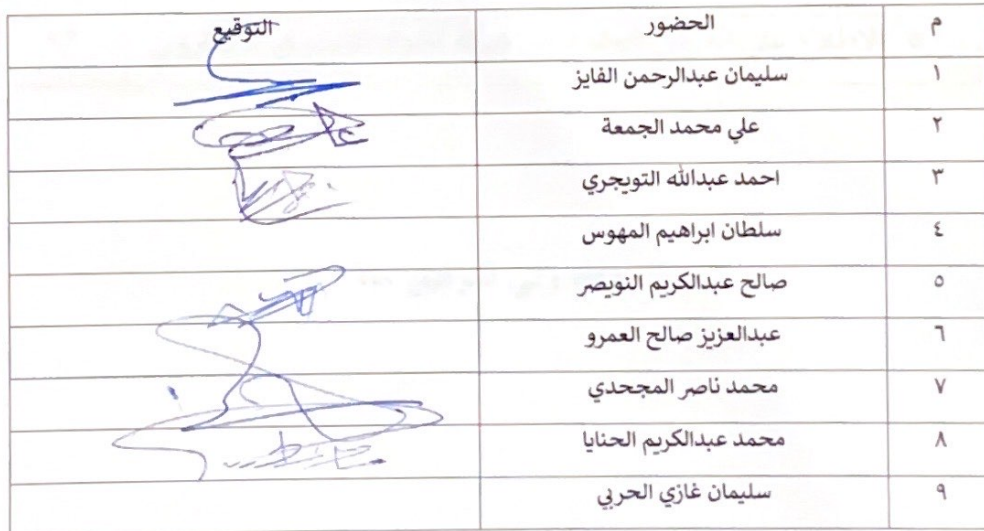 م الحضور التوقيع
١ سليمان عبدالرحمن الفايز
٢ علي محمد الجمعة
٣ احمد عبدالله التويجري
٤ سلطان ابراهيم المهوس
٥ صالح عبدالكريم النويصر
٦ عبدالعزيز صالح العمرو
٧ محمد ناصر المجحدي
٨ محمد عبدالكريم الحنايا
٩ سليمان غازي الحربي